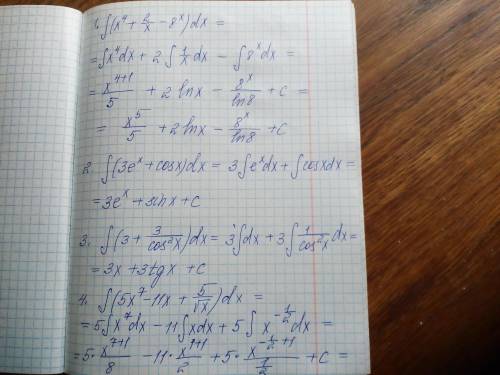 1. ∫(x⁴ + 2/x - 8ˣ)dx =
= ∫x⁴dx + 2∫1/x dx - ∫8ˣdx =
= x⁴⁺¹/5 + 2 lnx - 8ˣ/ln8 + C =
= x⁵/5 + 2lnx - 8ˣ/ln8 + C
2. ∫(3eˣ + cosx)dx = 3∫eˣdx + ∫cosxdx =
= 3eˣ + sinx + C
3. ∫(3 + 3/cos²x)dx = 3∫dx + 3∫1/cos²x dx =
= 3x + 3tgx + C
4. ∫(5x⁷ - 11x + 5/√x)dx =
= 5∫x⁷dx - 11∫xdx + 5∫x^(-1/2)dx =
= 5·x⁷⁺¹/8 - 11·x¹⁺¹/2 + 5·x^(-1/2+1)/(1/2) + C =